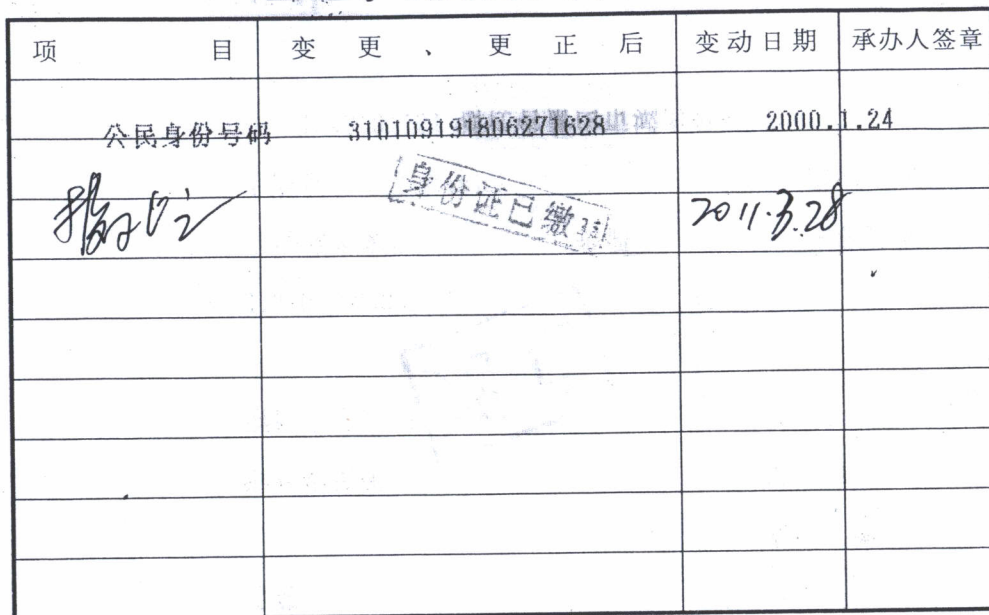 项 目 变 更 、 更 正 后 变动日期 承办人签章
公民身份号码 310109191806271628 2000.1.24
身份证已缴
2011.3.28